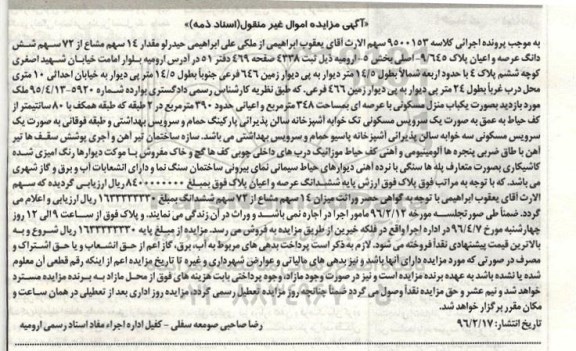 «آگهی مزایده اموال غیر منقول(اسناد ذمه)»
به موجب پرونده اجرائی کلاسه ۹۵۰۰۱۵۳ سهم الارث آقای یعقوب ابراهیمی از ملکی علی ابراهیمی حیدرلو مقدار ۱۴ سهم مشاع از ۷۲ سهم شش
دانگ عرصه و اعیان پلاک ۹/۶۴۵- اصلی بخش ۵- ارومیه ذیل ثبت ۴۳۳۸ صفحه ۴۶۹ دفتر ۵۱ در آدرس ارومیه بلوار امامت خیابان شهید اصغری
کوچه ششم پلاک ۴ با حدود اربعه شمالاً بطول ۱۴/۵ متر دیوار به پی دیوار زمین ۶۴۶ فرعی جنوباً بطول ۱۴/۵ متر پی دیوار به خیابان احداثی ۱۰ متری
محل درب غرباً بطول ۲۴ متر پی دیوار به پی دیوار زمین ۴۶۶ فرعی، که طبق نظریه کارشناس رسمی دادگستری وارده شماره ۵۹۲۰-۹۵/۴/۱۳ ملک
مورد بازدید بصورت یکباب منزل مسکونی با عرصه ای بمساحت ۳۴۸ مترمربع و اعیانی حدود ۳۹۰ مترمربع در ۲ طبقه که طبقه همکف با ۸۰ سانتیمتر از
کف حیاط به عمق به صورت یک سرویس مسکونی تک خوابه آشپزخانه سالن پذیرائی پارکینگ حمام و سرویس بهداشتی و طبقه فوقانی به صورت یک
سرویس مسکونی سه خوابه سالن پذیرائی آشپزخانه پاسیو حمام و سرویس بهداشتی می باشد. سازه ساختمان تیر آهن و آجری پوشش سقف ها تیر
آهن با طاق ضربی پنجره ها آلومینیومی و آهنی کف حیاط موزائیک درب های داخلی چوبی کف ها گچ و خاک مفروش با موکت دیوارها رنگ آمیزی شده
کاشیکاری بصورت متعارف پله ها سنگی با نرده آهنی دیوارهای حیاط سیمانی نمای بیرونی ساختمان سنگ نما و دارای انشعابات آب و برق و گاز شهری
می باشد. که با توجه به مراتب فوق پلاک فوق ارزش پایه ششدانگ عرصه و اعیان پلاک فوق بمبلغ ۸۴۰۰۰۰۰۰۰۰ ریال ارزیابی گردیده که سهم
الارث آقای یعقوب ابراهیمی با توجه به گواهی حصر وراثت میزان ۱۴ سهم مشاع از ۷۲ سهم ششدانگ بمبلغ ۱۶۳۳۳۳۳۳۳۰ ریال ارزیابی و اعلام می
گردد. ضمناً طی صورتجلسه مورخه ۹۶/۲/۱۲ مامور اجرا در اجاره نمی باشد و وراث در آن زندگی می نمایند. و پلاک فوق از ساعت ۹ الی ۱۲ روز
چهارشنبه مورخ ۹۶/۴/۷ در اداره اجرا واقع در فلکه خیرین از طریق مزایده به فروش می رسد. مزایده از مبلغ پایه ۱۶۳۳۳۳۳۳۳۰ ریال شروع و به
بالاترین قیمت پیشنهادی نقداً فروخته می شود. لازم به ذکر است پرداخت بدهی های مربوط به آب، برق، گاز اعم از حق انشعاب و یا حق اشتراک و
مصرف در صورتی که مورد مزایده دارای آنها باشد و نیز بدهی های مالیاتی و عوارض شهرداری و غیره تا تاریخ مزایده اعم از اینکه رقم قطعی آن معلوم
شده یا نشده باشد به عهده برنده مزایده است و نیز در صورت وجود مازاد، وجوه پرداختی بابت هزینه های فوق از محل مازاد به برنده مزایده مسترد
خواهد شد و نیم عشر و حق مزایده نقداً وصول می گردد ضمناً چنانچه روز مزایده تعطیل رسمی گردد، مزایده روز اداری بعد از تعطیلی در همان ساعت و
مکان مقرر برگزار خواهد شد.
تاریخ انتشار: ۹۶/۲/۱۷ رضا صاحبی صومعه سفلی - کفیل اداره اجراء مفاد اسناد رسمی ارومیه